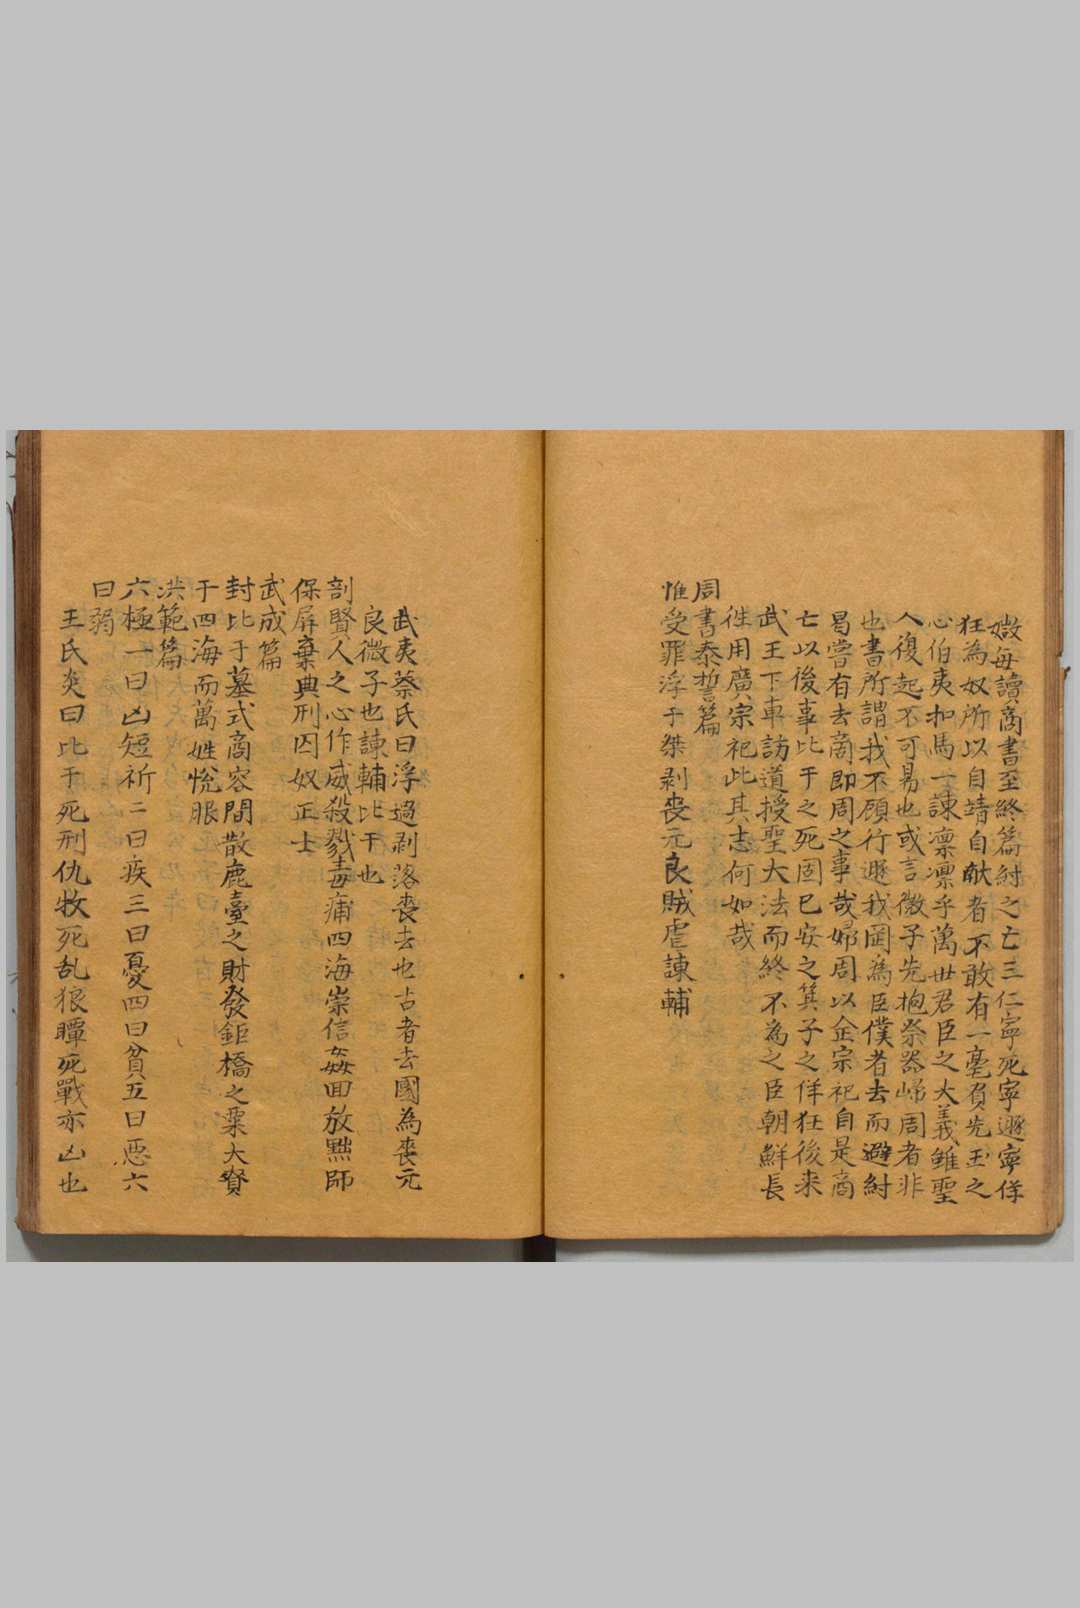 嫩每讀商書至終篇紂之亡三仁寧死寧遯寧佯
狂為奴所以自靖自献者不敢有一毫負先王之
心伯夷扣馬一諫凛凛乎萬世君臣之大義雖聖
人復起不可易也或言微子先抱祭器歸周者非
也書所謂我不顧行遯我罔為臣僕者去而避紂
曷嘗有去商即周之事哉婦周以企宗祀自是商
亡以後事比干之死固已安之箕子之佯狂後来
武王下車訪道授聖大法而終不為之臣朝鮮長
徃用廣宗祀此其志何如哉
周書泰誓篇
惟受罪浮于桀剥喪元良賊虐諫輔
武夷蔡氏曰浮過剥落喪去也古者去國為喪元
良微子也諫輔比干也
剖賢人之心作威殺戮毒痡四海崇信姦回放黜師
保屏棄典刑囚奴正士
武成篇
封比干墓式商容閭散鹿臺之財發鉅橋之粟大賚
于四海而萬姓悅服
洪範篇
六極一曰凶短祈二曰疾三曰憂四曰貧五曰惡六
曰弱
王氏炎曰比干死刑仇牧死乱狼瞫死戰亦凶也